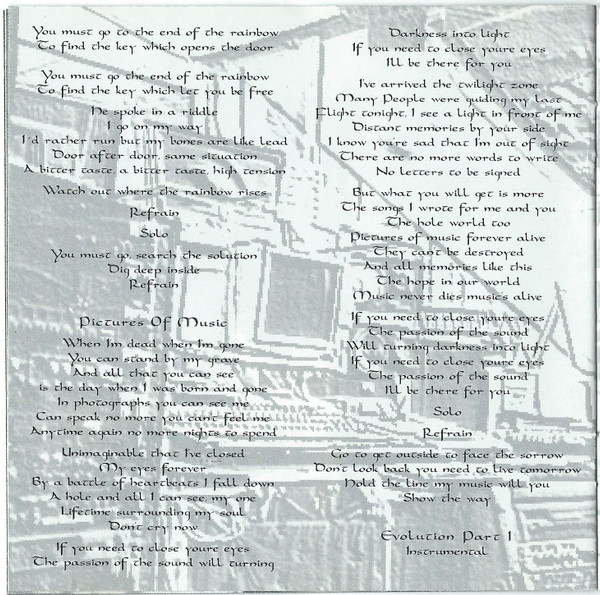 You must go to the end of the rainbow
To find the key which opens the door
You must go the end of the rainbow
To find the key which let you be free
He spoke in a riddle
I go on my way
I'd rather run but my bones are like lead
Door after door, same situation
A bitter taste, a bitter taste, high tension
Watch out where the rainbow rises
Refrain
Solo
You must go, search the solution
Dig deep inside
Refrain
Pictures Of Music
When I'm dead when I'm gone
You can stand by my grave
And all that you can see
is the day when I was born and gone
In photographs you can see me
Can speak no more you can't feel me
Anytime again no more nights to spend
Unimaginable that I've closed
My eyes forever
By a battle of heartbeats I fall down
A hole and all I can see, my one
Lifetime surrounding my soul
Don't cry now
If you need to close youre eyes
The passion of the sound will turning
Darkness into light
If you need to close youre eyes
I'll be there for you
I've arrived the twilight zone
Many People were guiding my last
Flight tonight, I see a light in front of me
Distant memories by your side
I know you're sad that I'm out of sight
There are no more words to write
No letters to be signed
But what you will get is more
The songs I wrote for me and you
The hole world too
Pictures of music forever alive
They can't be destroyed
And all memories like this
The hope in our world
Music never dies musics alive
If you need to close youre eyes
The passion of the sound
Will turning darkness into light
If you need to close youre eyes
The passion of the sound
I'll be there for you
Solo
Refrain
Go to get outside to face the sorrow
Don't look back you need to live tomorrow
Hold the line my music will you
Show the way
Evolution Part 1
Instrumental